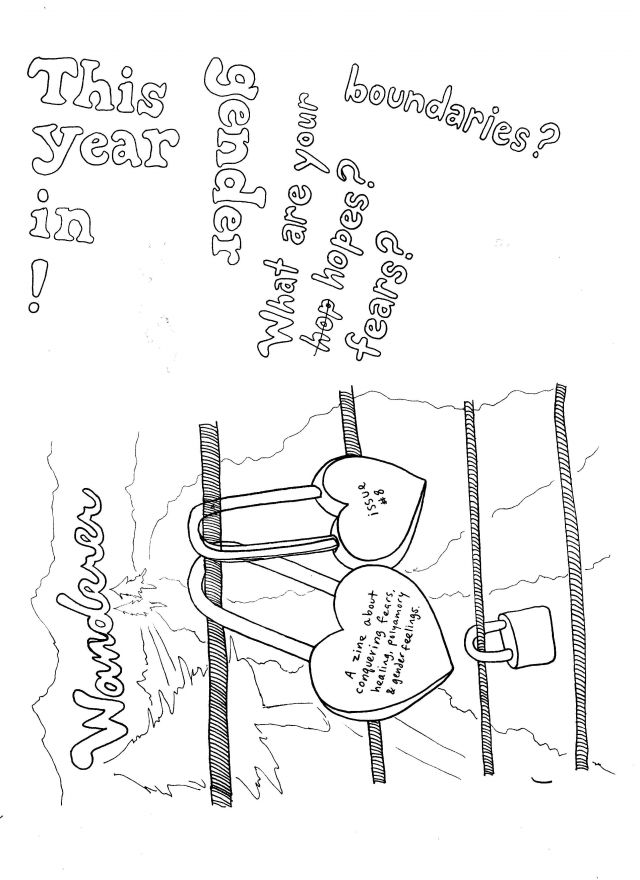 This
year
in
!
gender
What are your
hop hopes?
fears?
boundaries?
Wanderer
issue
#8
A zine about
conquering fears,
healing, polyamory
& gender feelings.